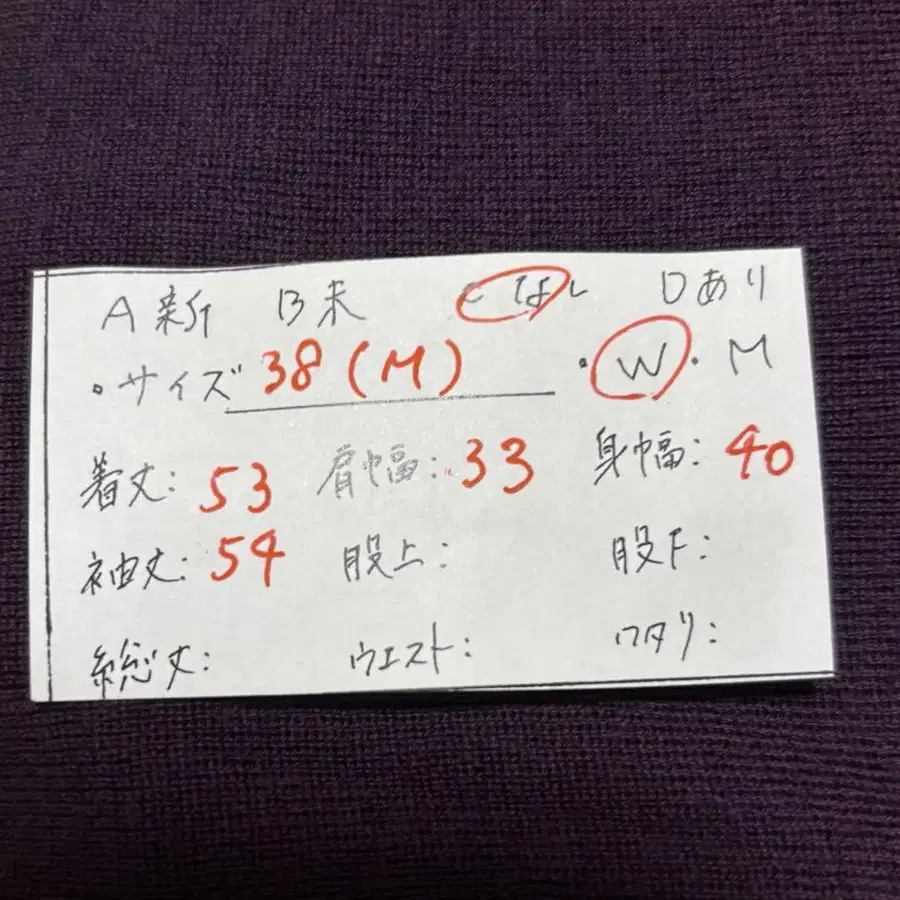 A新 B未 Cなし Dあり
・サイズ 38(M) ・W・M
着丈: 53 肩幅: 33 身幅: 40
袖丈: 54 股上: 股下:
総丈: ウエスト: ワタリ: